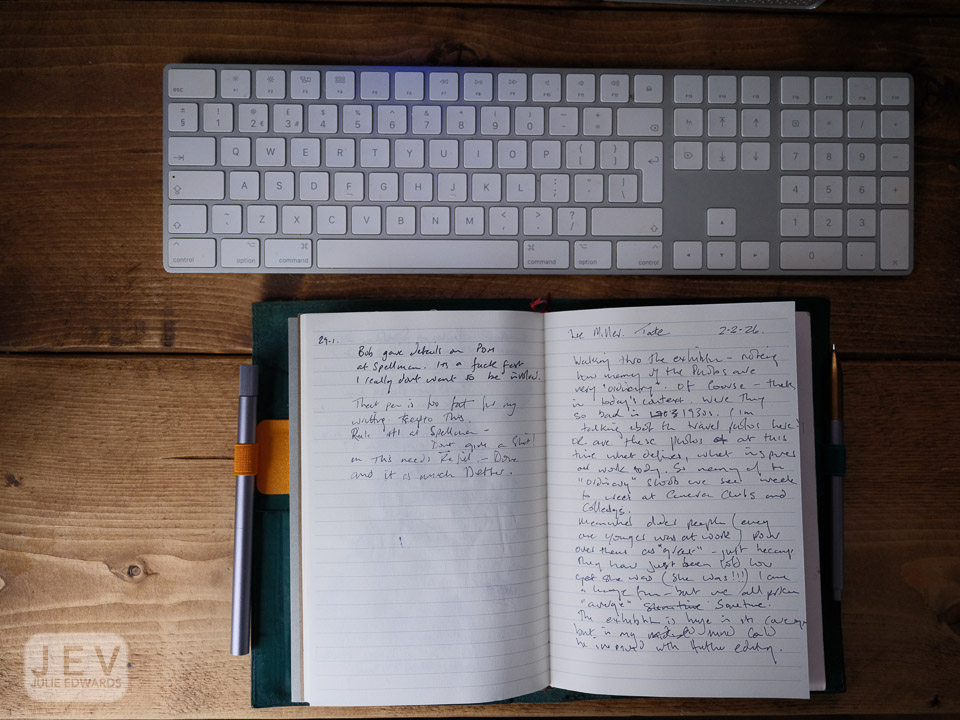 esc F1 F2 F3 F4 F5 F6 F7 F8 F9 F10 F11 F12
± § ! 1 @ 2 € £ 3 # $ 4 % 5 ^ 6 & 7 * 8 ( 9 ) 0 _ - + =
Q W E R T Y U I O P { [ } ]
A S D F G H J K L : ; " ' | \
~ ` Z X C V B N M < , > . ? /
control option command command option control
= / *
7 8 9 -
4 5 6 +
1 2 3
0 .
29-1.
Bob gave details on Pom
at Spellman. Its a fuck fest
I really dont want to be involv.
That pen is too fast for my
writing
Rule #1 at Spellman -
Dont give a Shit!
on This needs Refill - Done
and it is much Better.
Lee Miller. Tate 2-2-26.
Walking thro the exhibitn - noting
how many of the Photos are
very "ordinary". Of Course - thats
in today's context. Were They
so bad in 1930s. (Im
talking about the travel photos here)
Or are these photos at this
time what defines, what inspires
our work today. So many of the
"ordinary" shots we see week
to week at Camera Clubs and
Colledgs.
people (every
one younger was at work) pour
over them as "great" - just because
They have just been told how
great she was (she was!!!) I am
a huge fan - but we all
"average" Sometime.
The exhibitn is huge in its coverage
but in my mind Could
be improved with further editing.
JEV
JULIE EDWARDS